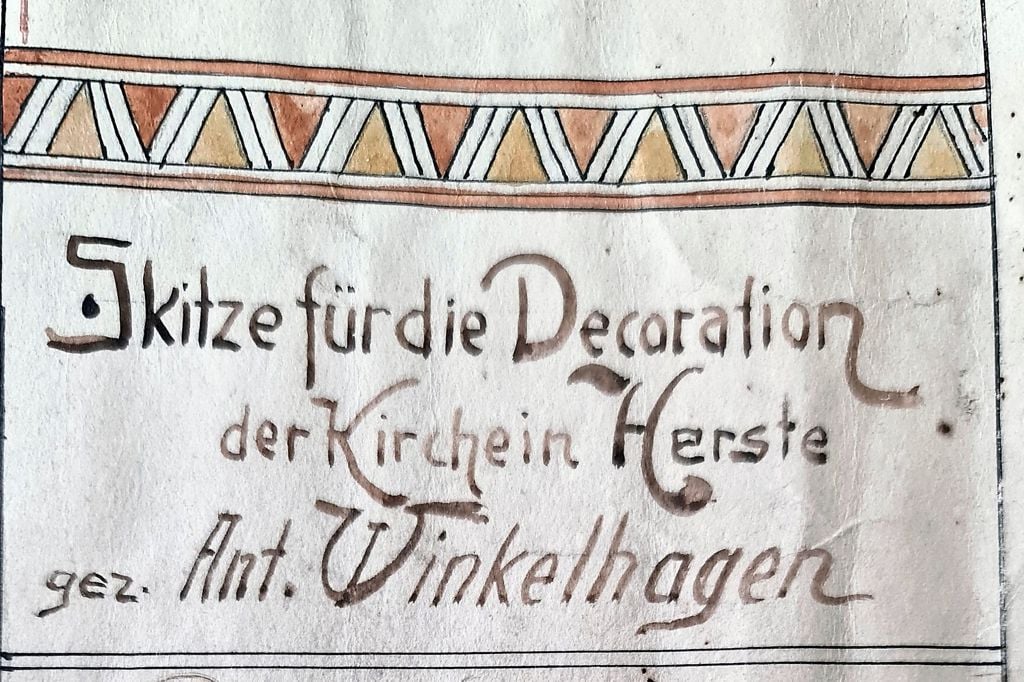 Skitze für die Decoration
der Kirche in Herste
gez. Ant. Winkelhagen